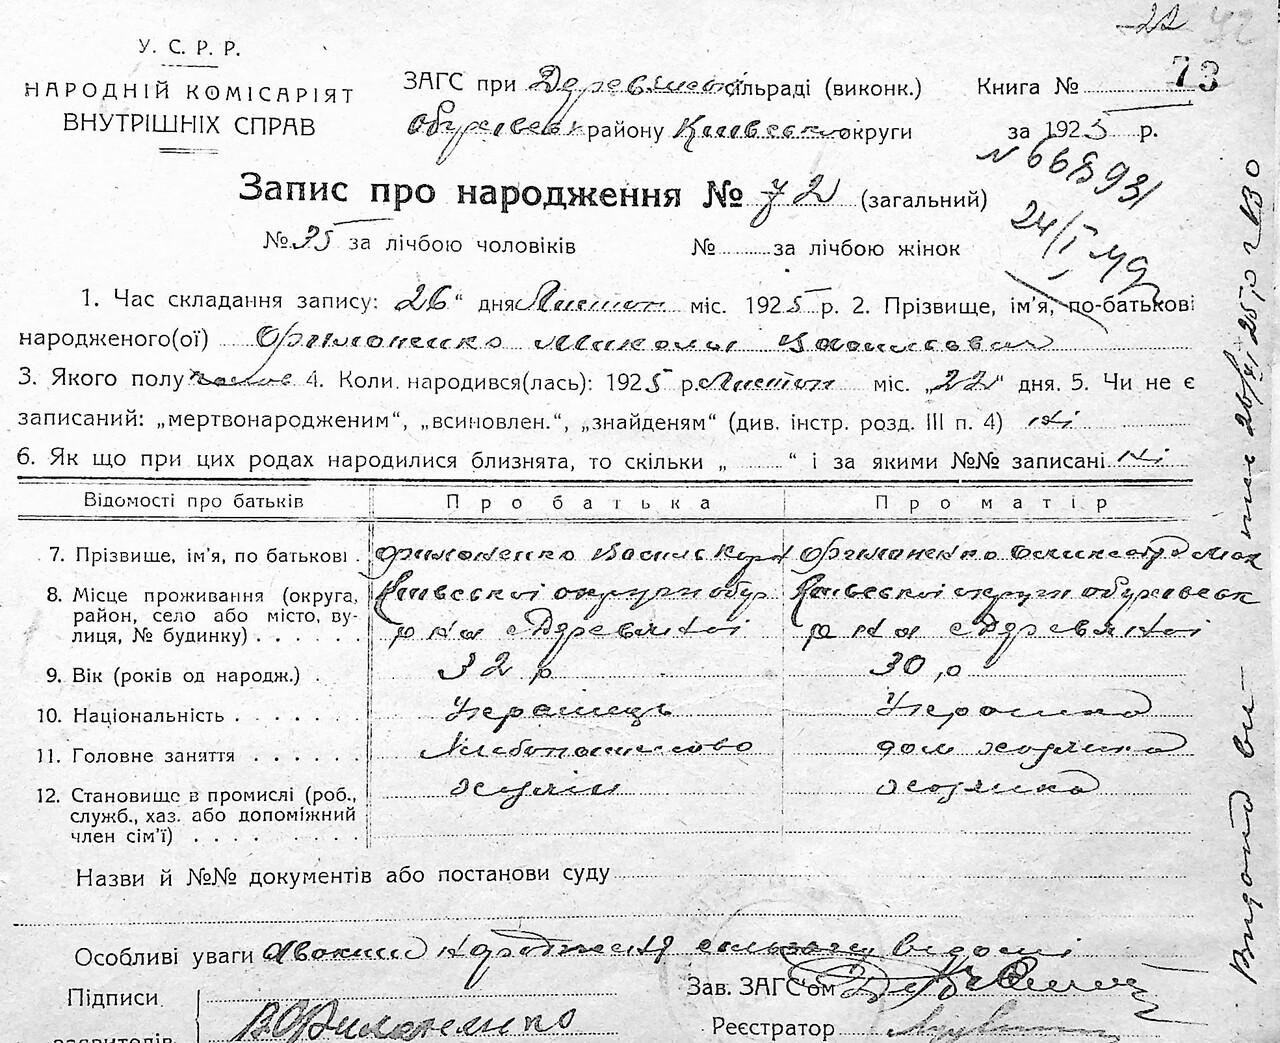 22 42
У. С. Р. Р.
НАРОДНІЙ КОМІСАРІЯТ
ВНУТРІШНІХ СПРАВ
ЗАГС при Деревянській сільраді (виконк.)
Книга № 73
району Київської округи
за 1925 р.
N 668931
Запис про народження № 72 (загальний)
24/I 49
№ 35 за лічбою чоловіків № за лічбою жінок
1. Час складання запису: 26" дня Листоп міс. 1925 р. 2. Прізвище, ім'я, по-батькові
народженого(ої) Филоненко Микола Васильович
3. Якого полу 4. Коли народився(лась): 1925 р. Листоп міс. „22" дня. 5. Чи не є
записаний: „мертвонародженим", „всиновлен.", „знайденям" (див. інстр. розд. III п. 4) ні
6. Як що при цих родах народилися близнята, то скільки „ " і за якими №№ записані ні
Відомості про батьків Про батька Про матір
7. Прізвище, ім'я, по батькові . Филоненко Василь Филоненко
8. Місце проживання (округа, Київської округи обух Київської округи обухівськ
район, село або місто, ву-
лиця, № будинку) . . . . . . р на с Деревяної р на с Деревяної
9. Вік (років од народж.) . 32 р 30 р
10. Національність . . . . . . . Українець Українка
11. Головне заняття . . . . . . Хлібопашество дом хозяйка
12. Становище в промислі (роб., хозяїн хозяйка
служб., хаз. або допоміжний
член сім'ї) . . . . . . . . .
Назви й №№ документів або постанови суду
Особливі уваги народження
Підписи
Зав. ЗАГС'ом
В Филоненко
Реєстратор
заявителів
Видана